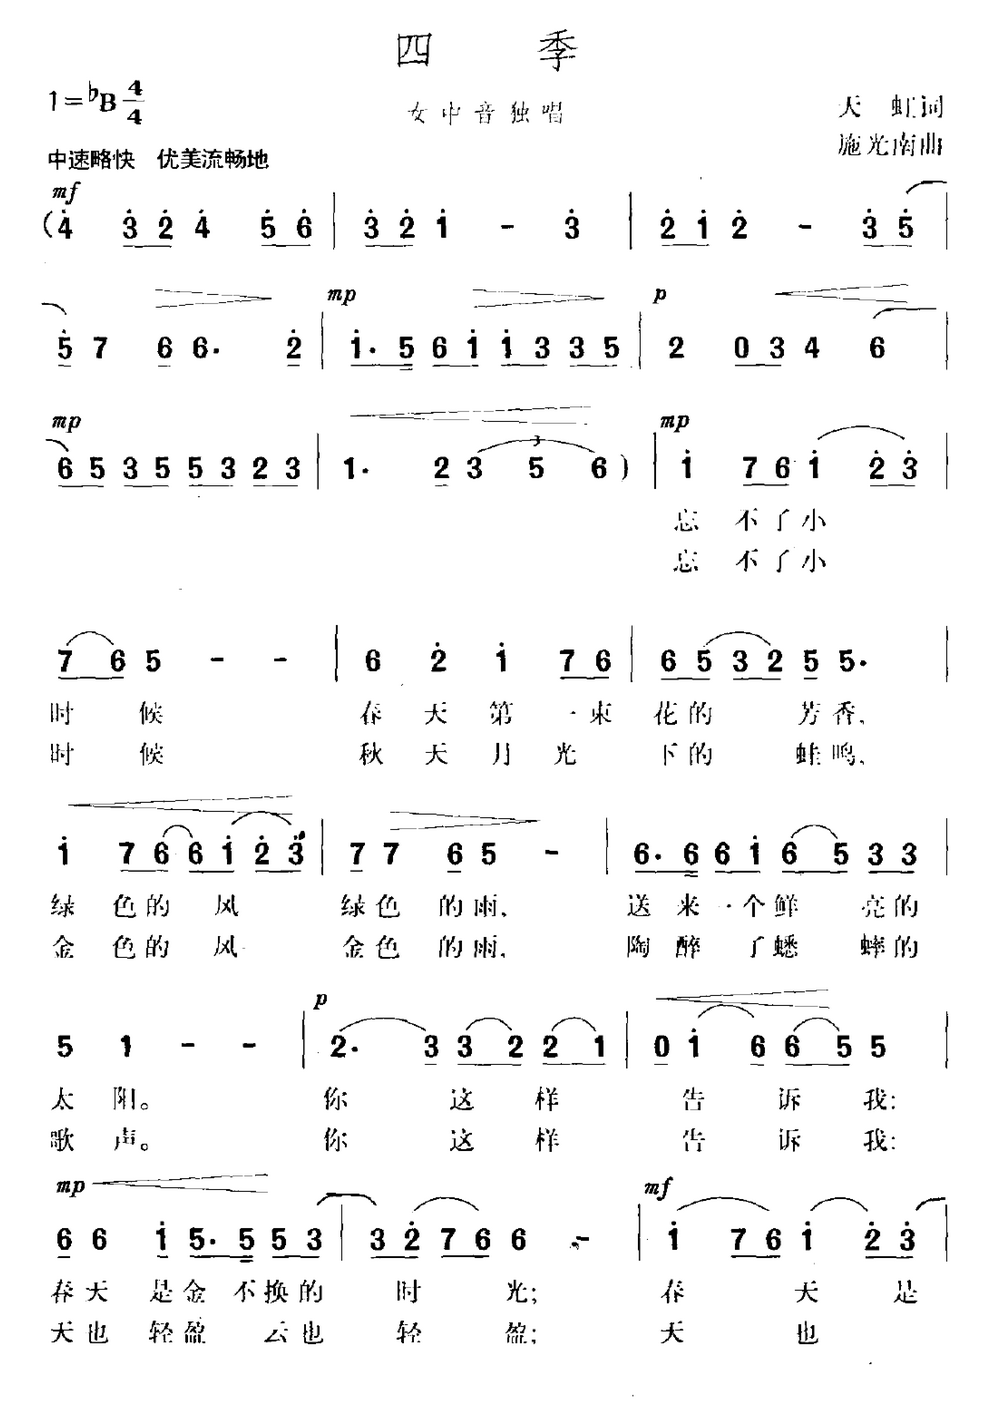 四 季
1=♭B 4/4
女中音独唱
天 虹词
施光南曲
中速略快 优美流畅地
mf
(4̇ 3̇ 2̇ 4̇ 5̇ 6̇ | 3̇ 2̇ 1̇ - 3̇ | 2̇ 1̇ 2̇ - 3̇ 5̇ |
mp p
5̇ 7 6 6· 2̇ | 1̇· 5 6 1̇ 1̇ 3 3 5 | 2 0 3 4 6 |
mp 3 mp
6 5 3 5 5 3 2 3 | 1· 2 3 5 6 ) | 1̇ 7 6 1̇ 2̇ 3̇ |
忘 不 了 小
忘 不 了 小
7 6 5 - - | 6 2̇ 1̇ 7 6 | 6 5 3 2 5 5· |
时 候 春 天 第 一 束 花 的 芳 香,
时 候 秋 天 月 光 下 的 蛙 鸣,
1̇ 7 6 6 1̇ 2̇ 3̇ | 7 7 6 5 - | 6· 6 6 1̇ 6 5 3 3 |
绿 色 的 风 绿 色 的 雨, 送 来 一 个 鲜 亮 的
金 色 的 风 金 色 的 雨, 陶 醉 了 蟋 蟀 的
5 1 - - | 2· 3 3 2 2 1 | 0 1̇ 6 6 5 5 |
p
太 阳。 你 这 样 告 诉 我:
歌 声。 你 这 样 告 诉 我:
mp mf
6 6 1̇ 5· 5 5 3 | 3 2̇ 7 6 6 - | 1̇ 7 6 1̇ 2̇ 3̇ |
春 天 是 金 不 换 的 时 光; 春 天 是
天 也 轻 盈 云 也 轻 盈; 天 也